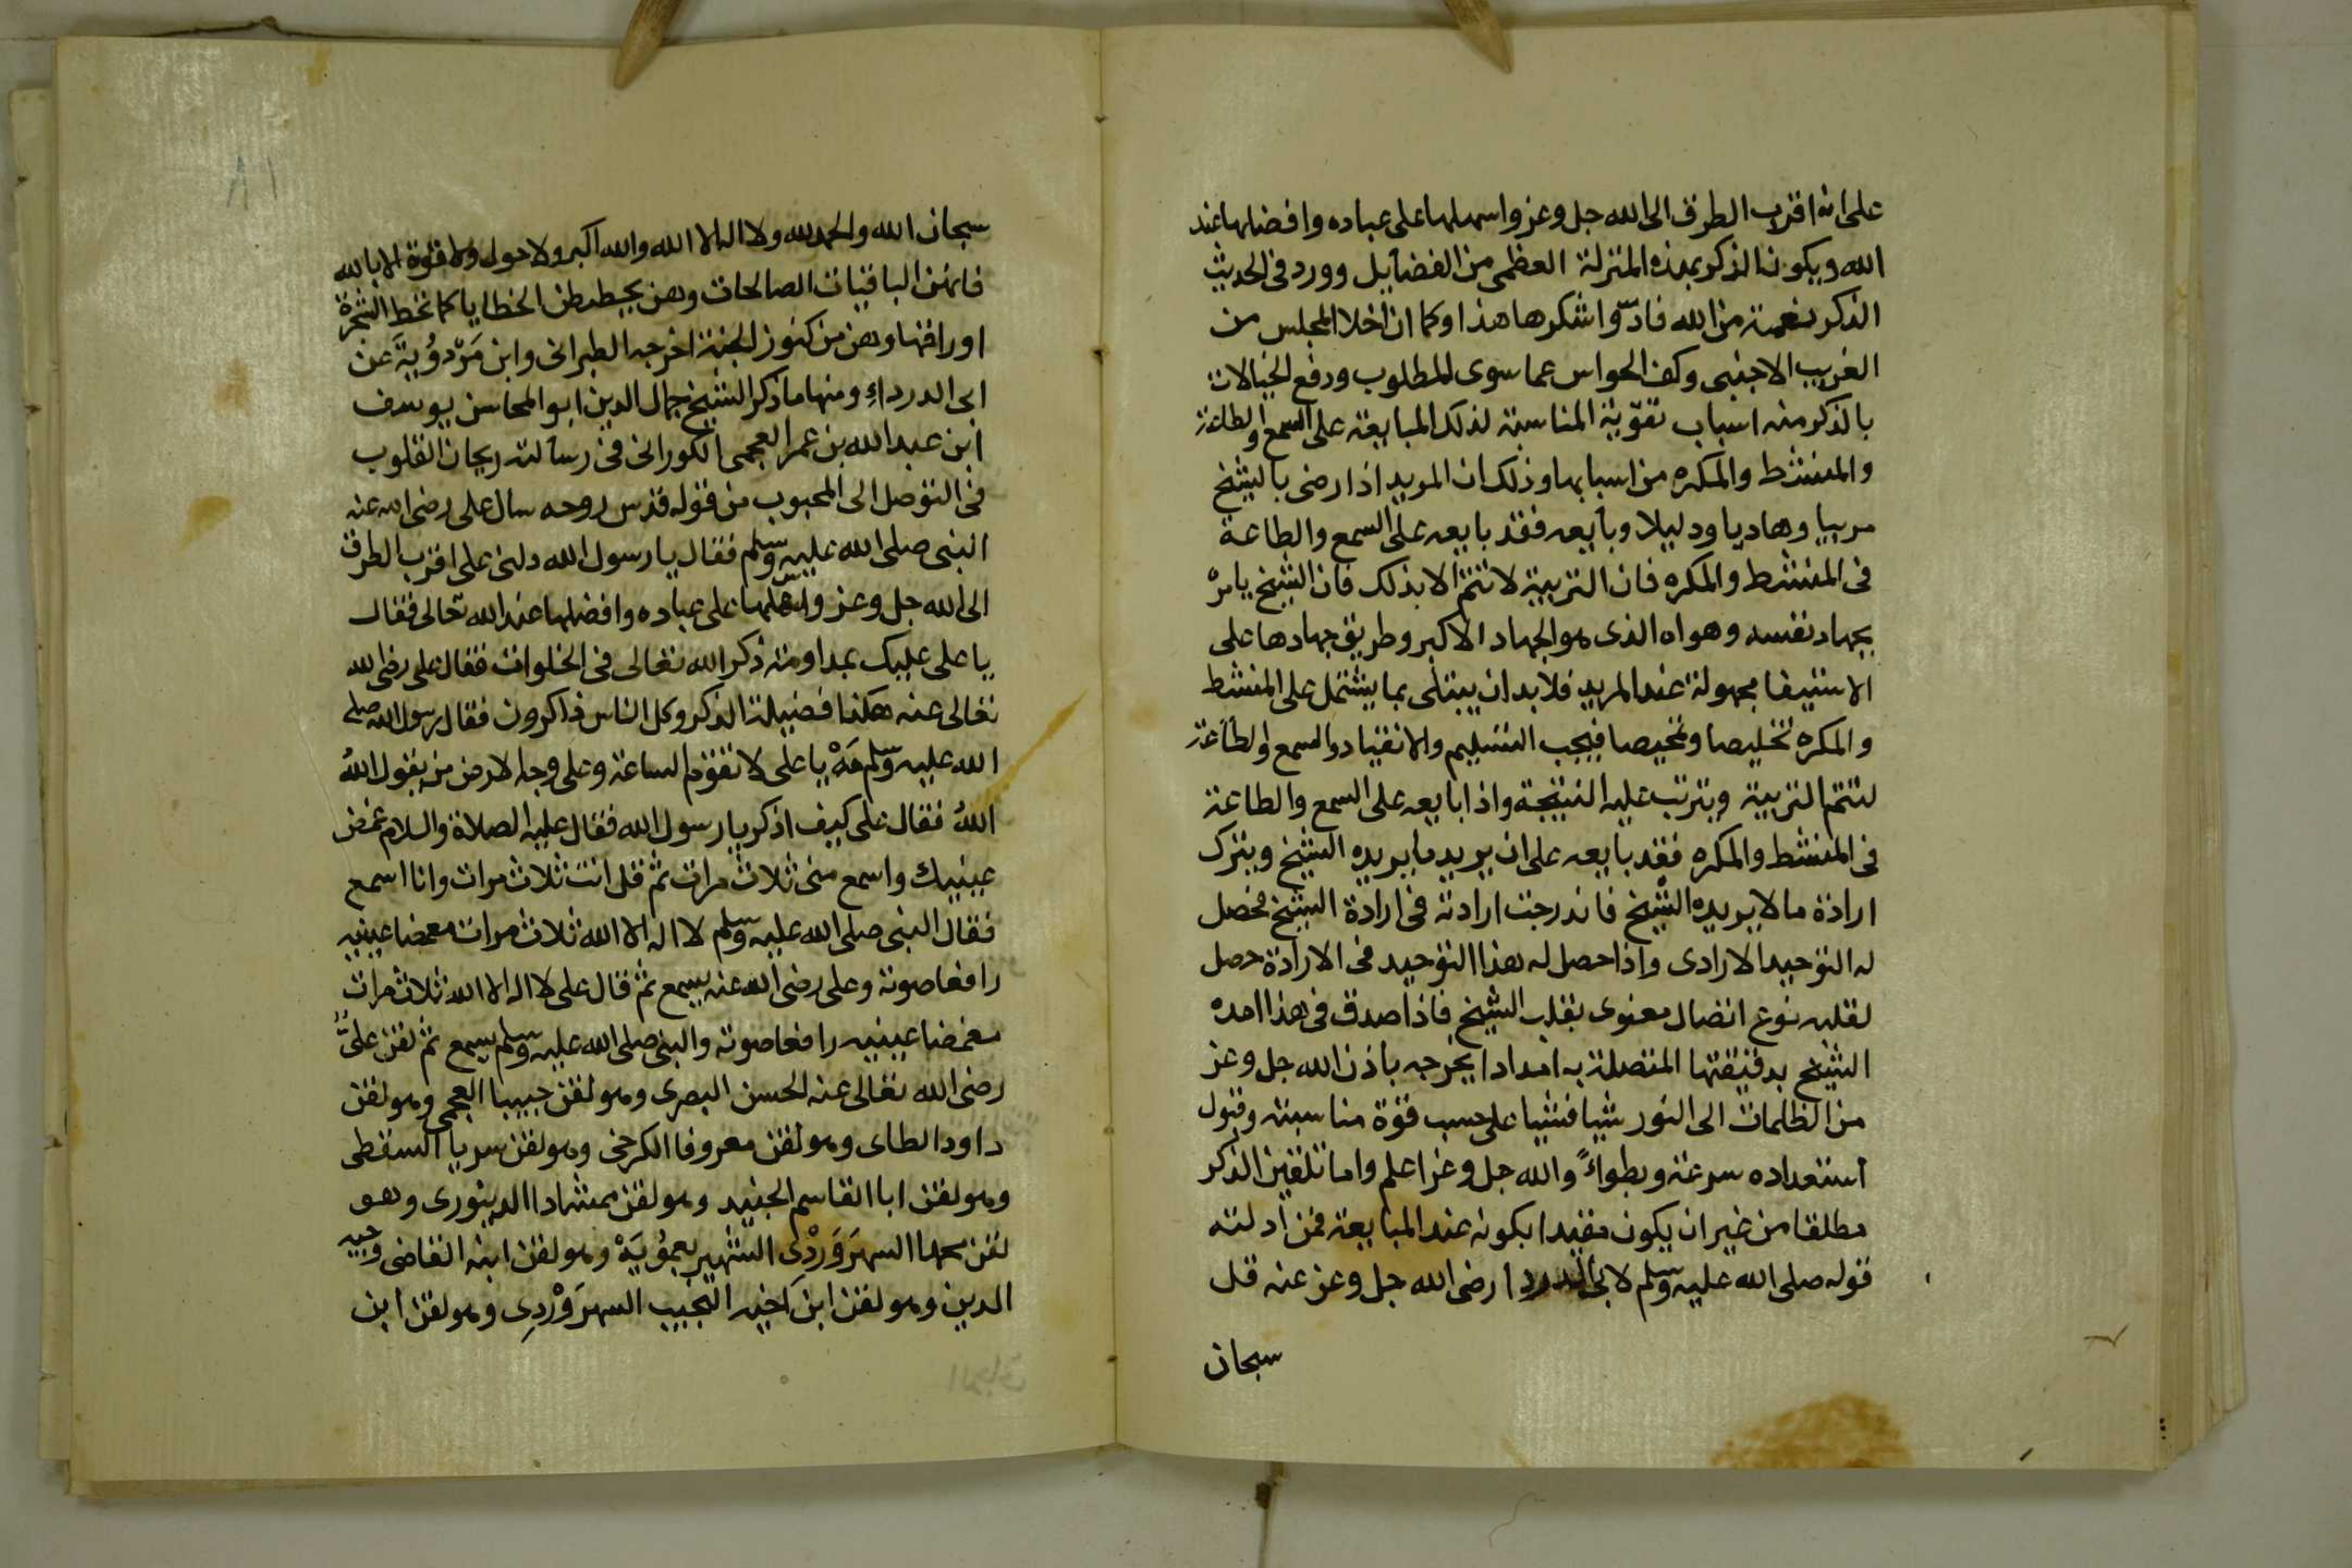 على انه اقرب الطرق الى الله جل وعز واسهلها على عباده وافضلها عند
الله ويكون الذكر بهذه المنزلة العظمى من الفضايل وورد فى الحديث
الذكر نعمة من الله فادّوا شكرها هذا وكما ان اخلا المجلس من
الغريب الاجنبى وكف الحواس عما سوى المطلوب ودفع الخيالات
بالذكر منه اسباب تقوّية المناسبة لذلك المبايعة على السمع والطاعة
والمنشط والمكره من اسبابها وذلك ان المريد اذا رضى بالشيخ
مربيا وهاديا ودليلا وبايعه فقد بايعه على السمع والطاعة
فى المنشط والمكره فان التربية لا تتم الا بذلك فان الشيخ يامره
بجهاد نفسه وهواه الذى هو الجهاد الاكبر وطريق جهادها على
الاستيفا مجهولة عند المريد فلا بد ان يبتلى بما يشتمل على المنشط
والمكره تخليصا وتمحيصا فيجب التسليم والانقياد والسمع والطاعة
لتتم التربية ويترتب عليه النتيجة واذا بايعه على السمع والطاعة
فى المنشط والمكره فقد بايعه على ان يريد ما يريده الشيخ ويترك
ارادة ما لا يريده الشيخ فاندرجت ارادته فى ارادة الشيخ فحصل
له التوحيد الارادى واذا حصل له هذا التوحيد فى الارادة حصل
لقلبه نوع اتصال معنوى بقلب الشيخ فاذا صدق فى هذا امده
الشيخ بدقيقتها المتصلة به امدادا يخرجه باذن الله جل وعز
من الظلمات الى النور شيا فشيا على حسب قوة مناسبته وقبول
استعداده سرعة وبطواً والله جل وعز اعلم واما تلقين الذكر
مطلقا من غير ان يكون مقيدا بكونه عند المبايعة فمن ادلته
قوله صلى الله عليه وسلم لابى الدردا رضى الله جل وعز عنه قل
سبحان
سبحان الله والحمد لله ولا اله الا الله والله اكبر ولا حول ولا قوة الا بالله
فانهن الباقيات الصالحات وهن يحططن الخطايا كما تحط الشجرة
اوراقها وهن من كنوز الجنة اخرجه الطبرانى وابن مَرْدوُيَة عن
ابى الدرداءِ ومنها ما ذكر الشيخ جمال الدين ابو المحاسن يوسف
ابن عبد الله بن عمر العجمى الكورانى فى رسالته ريحان القلوب
فى التوصل الى المحبوب من قوله قدس روحه سال على رضى الله عنه
النبى صلى الله عليه وسلم فقال يا رسول الله دلنى على اقرب الطرق
الى الله جل وعز واسهلها على عباده وافضلها عند الله تعالى فقال
يا على عليك بمداومة ذكر الله تعالى فى الخلوات فقال على رضى الله
تعالى عنه هكذا فضيلة الذكر وكل الناس ذاكرون فقال رسول الله صلى
الله عليه وسلم مَهْ يا على لا تقوم الساعة وعلى وجه الارض من يقول اللهُ
اللهُ فقال على كيف اذكر يا رسول الله فقال عليه الصلاة والسلام غمض
عينيك واسمع منى ثلاث مرات ثم قل انت ثلاث مرات وانا اسمع
فقال النبى صلى الله عليه وسلم لا اله الا الله ثلاث مرات مغمضا عينيه
رافعا صوته وعلى رضى الله عنه يسمع ثم قال على لا اله الا الله ثلاث مرات
مغمضا عينيه رافعا صوته والنبى صلى الله عليه وسلم يسمع ثم لقن علىٌّ
رضى الله تعالى عنه الحسن البصرى وهو لقن حبيبا العجمى وهو لقن
داود الطاى وهو لقن معروفا الكرخى وهو لقن سريا السقطى
وهو لقن ابا القاسم الجنيد وهو لقن ممشادا الدينورى وهو
لقن محمدا السهرَوَرْدِى الشهير بعمُوَيَهْ وهو لقن ابنه القاضى وجيه
الدين وهو لقن ابن اخيه النجيب السهرَوَرْدِى وهو لقن ابن